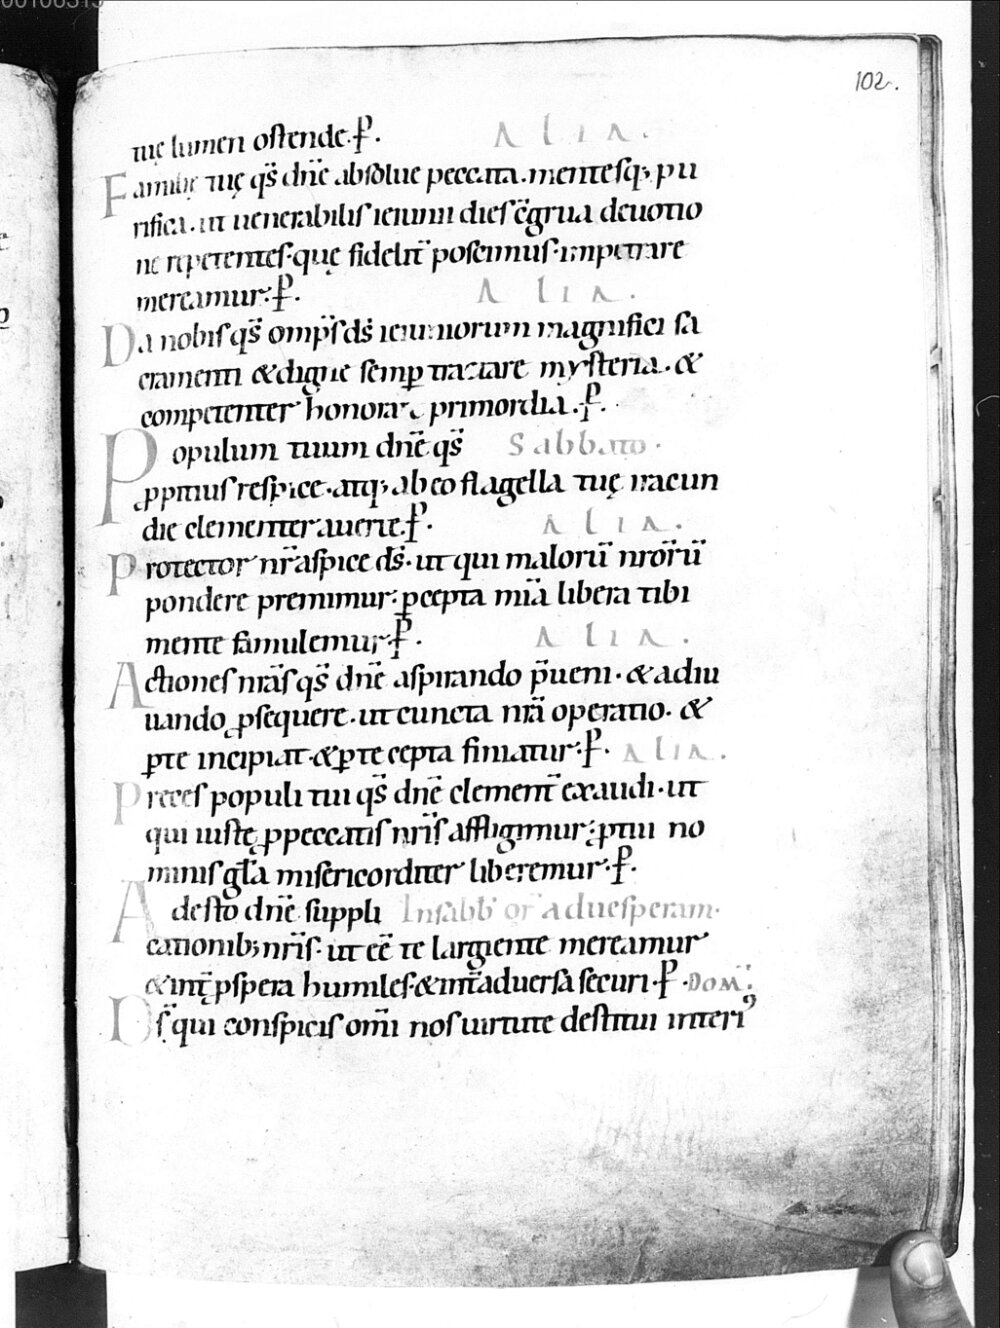 102.
tuę lumen ostende. P̄. ALIA.
Familię tuę qs̄ dn̄e absolue peccata. mentesq; pu
rifica. ut uenerabilis ieiunii dies c̄grua deuotio
ne repetentes. quę fidelit̄ poscimus. impetrare
mereamur. P̄. ALIA.
Da nobis qs̄ omp̄s ds̄ ieiuniorum magnifici sa
cramenti & digne semp̱ tractare mysteria. &
competenter honorare primordia. P̄.
Populum tuum dn̄e qs̄ Sabbato.
ꝓpitius respice. atq; ab eo flagella tuę iracun
dię clementer auerte. P̄. ALIA.
Protector nr̄ aspice ds̄. ut qui malorū nr̄orū
pondere premimur. p̱cepta mīa libera tibi
mente famulemur. P̄. ALIA.
Actiones nr̄as qs̄ dn̄e aspirando p̄ueni. & adiu
uando ꝓsequere. ut cuncta nr̄a operatio. &
p̱ te incipiat. & p̱ te cepta finiatur. P̄. ALIA.
Preces populi tui qs̄ dn̄e clement̄ exaudi. ut
qui iustę ꝓ peccatis nr̄is affligimur. p̱ tui no
minis gl̄a misericorditer liberemur. P̄.
Adesto dn̄e suppli In sabb̄ or̄ ad uesperam.
cationib; nr̄is. ut eē te largiente mereamur
& int̄ ꝓspera humiles. & int̄ aduersa securi. P̄. DOM̄.
Ds̄ qui conspicis omī nos uirtute destitui interi᾽